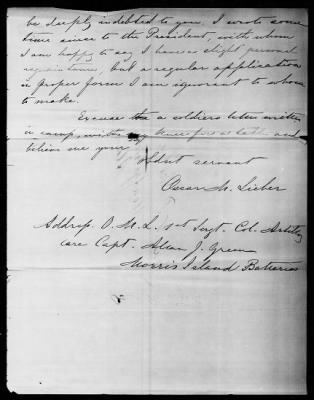 be deeply indebted to you. I wrote some
time since to the President, with whom
I am happy to say I have a slight personal
acquaintance, but a regular application
in proper form I am ignorant to whom
to make.
Excuse a soldiers letter written
in camp, with my knee for a table and
believe me your
Obdnt servant
Oscar M. Lieber
Address. O. M. L. 1st Sergt. Col. Artillery
care Capt. Allen J. Green
Morris Island Batteries